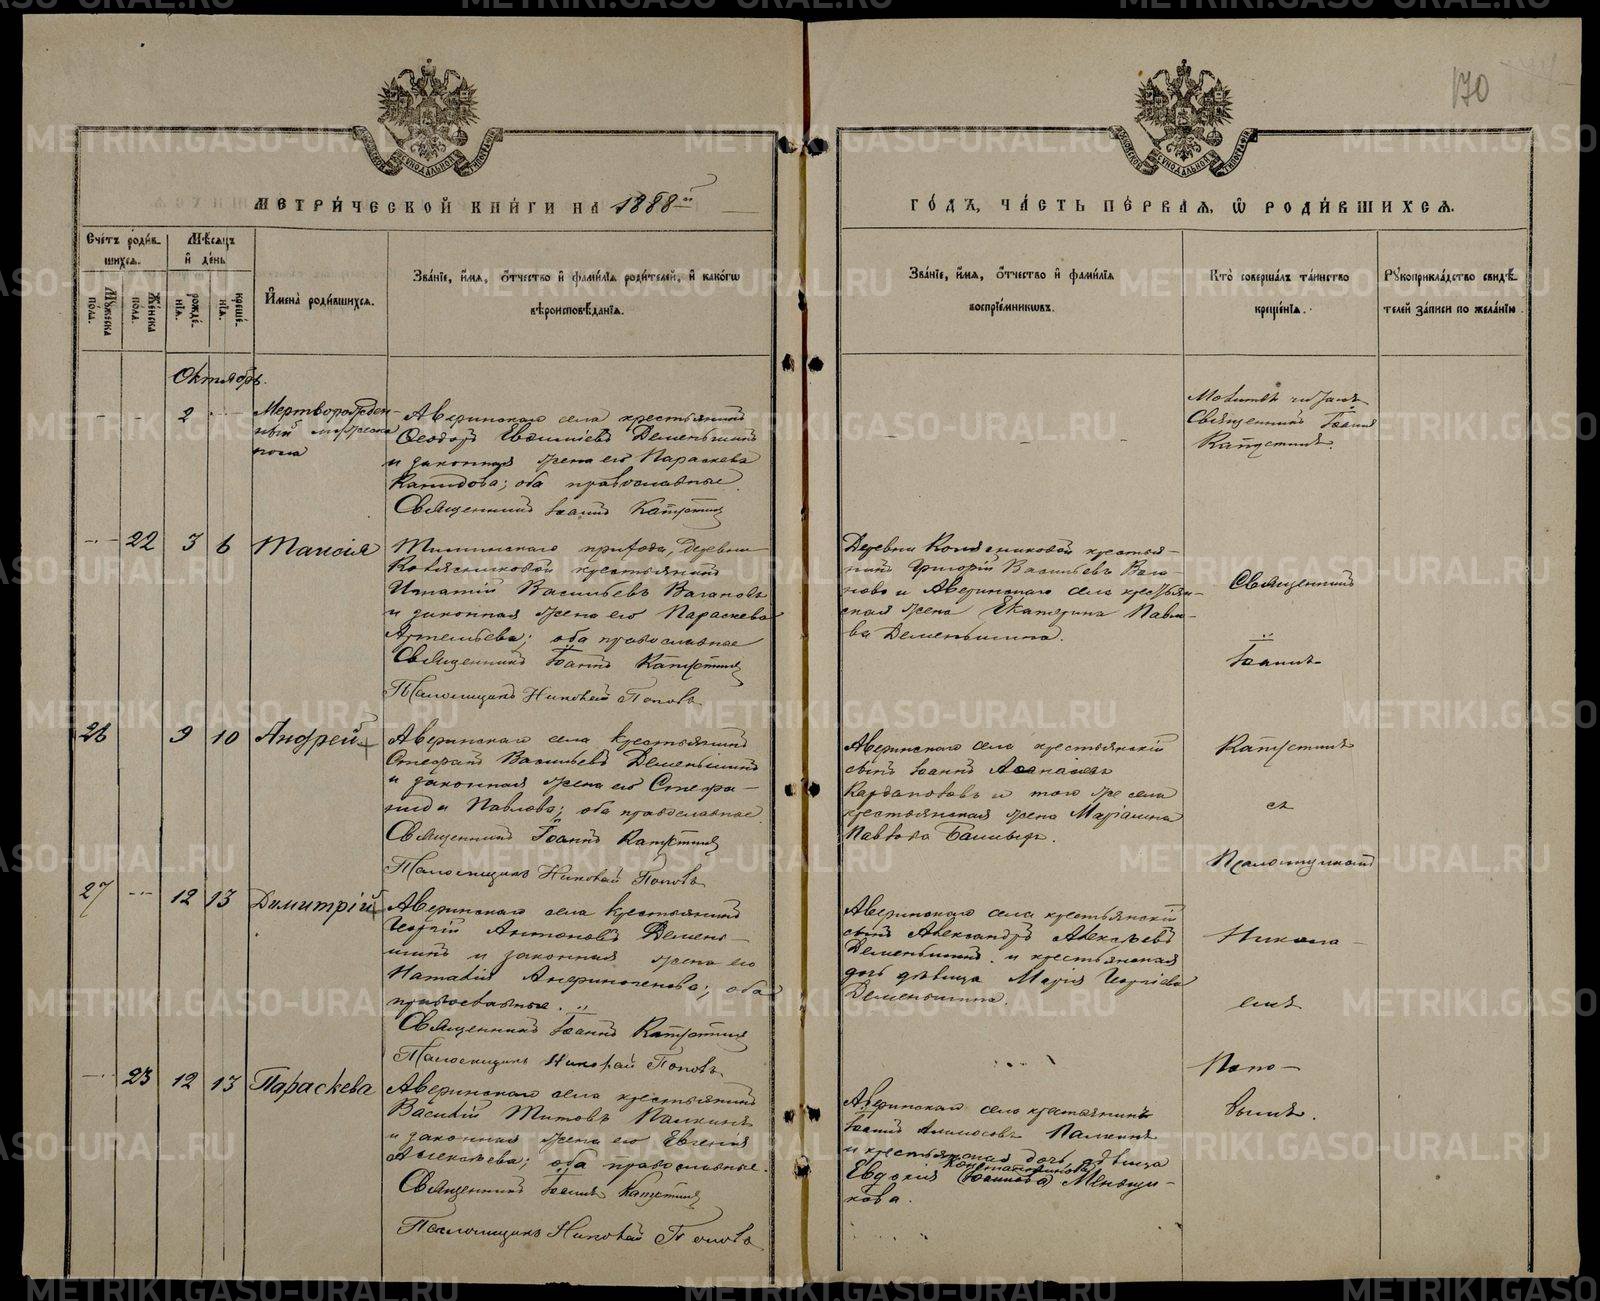 170
МЕТРИ́ЧЕСКОЙ КНИ́ГИ НА 1888й
ГО́ДЪ, ЧА́СТЬ ПЕ́РВАЯ, Ѡ РОДИ́ВШИХСЯ.
Сче́тъ роди́в-
шихся.
Му́жеска пола.
Же́нска пола.
Мѣ́сяцъ
и҆ де́нь
рожде́-
нїя.
креще́-
нїя.
И҆мена̀ роди́вшихся.
Зва́нїе, и҆́мя, ѻ҆́тчество и҆ фами́лїя роди́телей, и҆ како́гѡ
вѣроисповѣ́данїя.
Зва́нїе, и҆́мя, ѻ҆́тчество и҆ фами́лїя
воспрїе́мникѡвъ.
Кто̀ соверша́лъ та́инство
креще́нїя.
Рꙋкоприкла́дство свидѣ́-
телей за́писи по жела́нїю.
Октябрь.
2
Мертворожден-
ный мужеска
пола
Аверинскаго села крестьянинъ
Ѳеодоръ Деменьшинъ
и законная жена его Параскева
оба православные.
Священникъ Іоаннъ Капустинъ
Молитвъ читалъ
Священникъ Іоаннъ
Капустинъ.
22 3 6 Таисія
прихода, деревни
крестьянинъ
Игнатій Васильевъ Вагановъ
и законная жена его Параскева
Артемьева; оба православные
Священникъ Іоаннъ Капустинъ
Псаломщикъ Николай Поповъ
Деревни крестья-
нинъ Григорій Васильевъ Вага-
новъ и Аверинскаго села крестьян-
ская жена Екатерина Павло-
ва Деменьшина.
Священникъ
Іоаннъ
26 9 10 Андрей
Аверинскаго села крестьянинъ
Стефанъ Васильевъ Деменьшинъ
и законная жена его Стефа-
нида Павлова; оба православные.
Священникъ Іоаннъ Капустинъ
Псаломщикъ Николай Поповъ
Аверинскаго села крестьянскій
сынъ Іоаннъ
и того же села
крестьянская жена Маріанна
Павлова
Капустинъ
съ
Псаломщикомъ
27 12 13 Димитрій
Аверинскаго села крестьянинъ
Георгій Антоновъ Демень-
шинъ и законная жена его
Наталія Андриногенова; оба
православные.
Священникъ Іоаннъ Капустинъ
Псаломщикъ Николай Поповъ
Аверинскаго села крестьянскій
сынъ Александръ Алексѣевъ
Деменьшинъ и крестьянская
дочь дѣвица Марія Георгіева
Деменьшина.
Никола-
емъ
23 12 13 Параскева
Аверинскаго села крестьянинъ
Василій Титовъ Палкинъ
и законная жена его Евгенія
Алексѣева; оба православные.
Священникъ Іоаннъ Капустинъ
Псаломщикъ Николай Поповъ
Аверинскаго села крестьянинъ
Іоаннъ Палкинъ
и крестьянская дочь дѣвица
Константинова
Евдокія (Іоаннова) Меньщи-
кова.
Попо-
вымъ.
METRIKI.GASO-URAL.RU